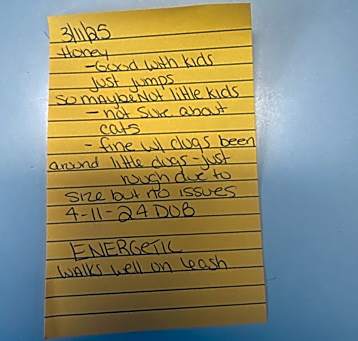 3/11/25
Honey
-Good with kids
just jumps
so maybe not little kids
- not sure about
cats
- fine w/ dogs been
around little dogs - just
rough due to
size but no issues
4-11-24 DOB
ENERGETIC
walks well on leash